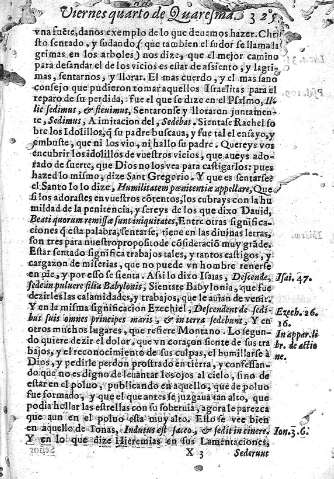 Viernes quarto de Quaresma. 325
vna fuẽte, danos exemplo de lo que deuemos hazer. Chri
sto sentado, y sudando (que tambien el sudor se llama la
grimas en los arboles) nos dize, que el mejor camino
para desandar el de los vicios es estar de assiento, y lagri
mas, sentarnos, y llorar. El mas cuerdo, y el mas sano
consejo que pudieron tomar aquellos Israelitas para el
reparo de su perdida, fue el que se dize en el Psalmo, Il
lic sedimus, & fleuimus, Sentaronse y lloraron juntamen-
te, Sedimus, A imitacion del, Sedebat. Sientase Rachel so
bre los Idolillos, q̃ su padre buscaua, y fue tal el ensayo, y
embuste, que ni los vio, ni hallo su padre. Quereys vos
encubrir los idolillos de vuestros vicios, que aueys ado-
rado de suerte, que Dios no los vea para castigarlos: pues
hazed lo mismo, dize Sant Gregorio. Y que es sentarse?
el Santo lo lo dize, Humilitatem pœnitentiæ appellare, Que
si los adorastes en vuestros cõtentos, los cubrays con la hu
mildad de la penitencia, y sereys de los que dixo Dauid,
Beati quorum remissæ sunt iniquitates, Entre otras significa-
ciones q̃ esta palabra, sentarse, tiene en las diuinas letras,
son tres para nuestro proposito de cõsideraciõ muy grãde.
Estar sentado significa trabajos tales, y tantos castigos, y
cargazon de miserias, que no puede vn hombre tenerse
en pie, y por esso se sienta. Assi lo dixo Isaias, Descende,
sede in puluere filia Babylonis, Sientate Babylonia, que fue
dezirle las calamidades, y trabajos, que le auian de venir.
Y en la misma significacion Ezechiel, Descendent de sedi-
bus suis omnes principes maris, & in terra sedebunt. Y en
otros muchos lugares, que refiere Montano. Lo segun-
do quiere dezir el dolor, que vn coraçon siente de sus tra
bajos, y el reconocimiento de sus culpas, el humillarse à
Dios, y pedirle perdon prostrado en tierra, y confessan-
do que no es digno de leuantar los ojos al cielo, sino de
estar en el poluo, publicando en aquello, que de poluo
fue formado, y que el que antes se juzgaua tan alto, que
podia hollar las estrellas con su soberuia, agora le parezca
que aun en el poluo esta muy alto. Esto se vee bien
en aquello de Ionas, Indutus est sacco, & sedit in cinere.
Y en lo que dize Hieremias en sus Lamentaciones,
X 3 Sederunt
Isai. 47.
Ezech. 26.
16.
In apper. li
br. de actio
ne.
Ion. 3. 6.